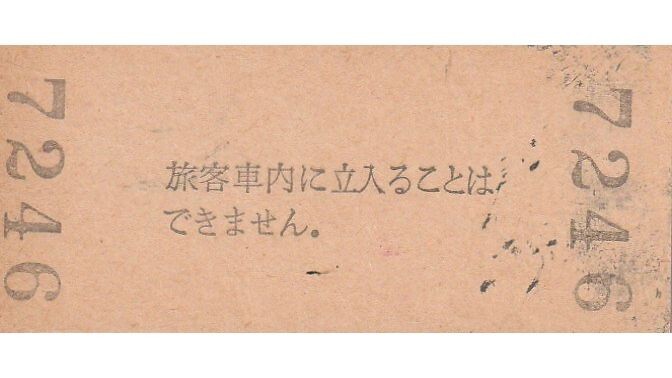 7246
旅客車内に立入ることは
できません。
7246